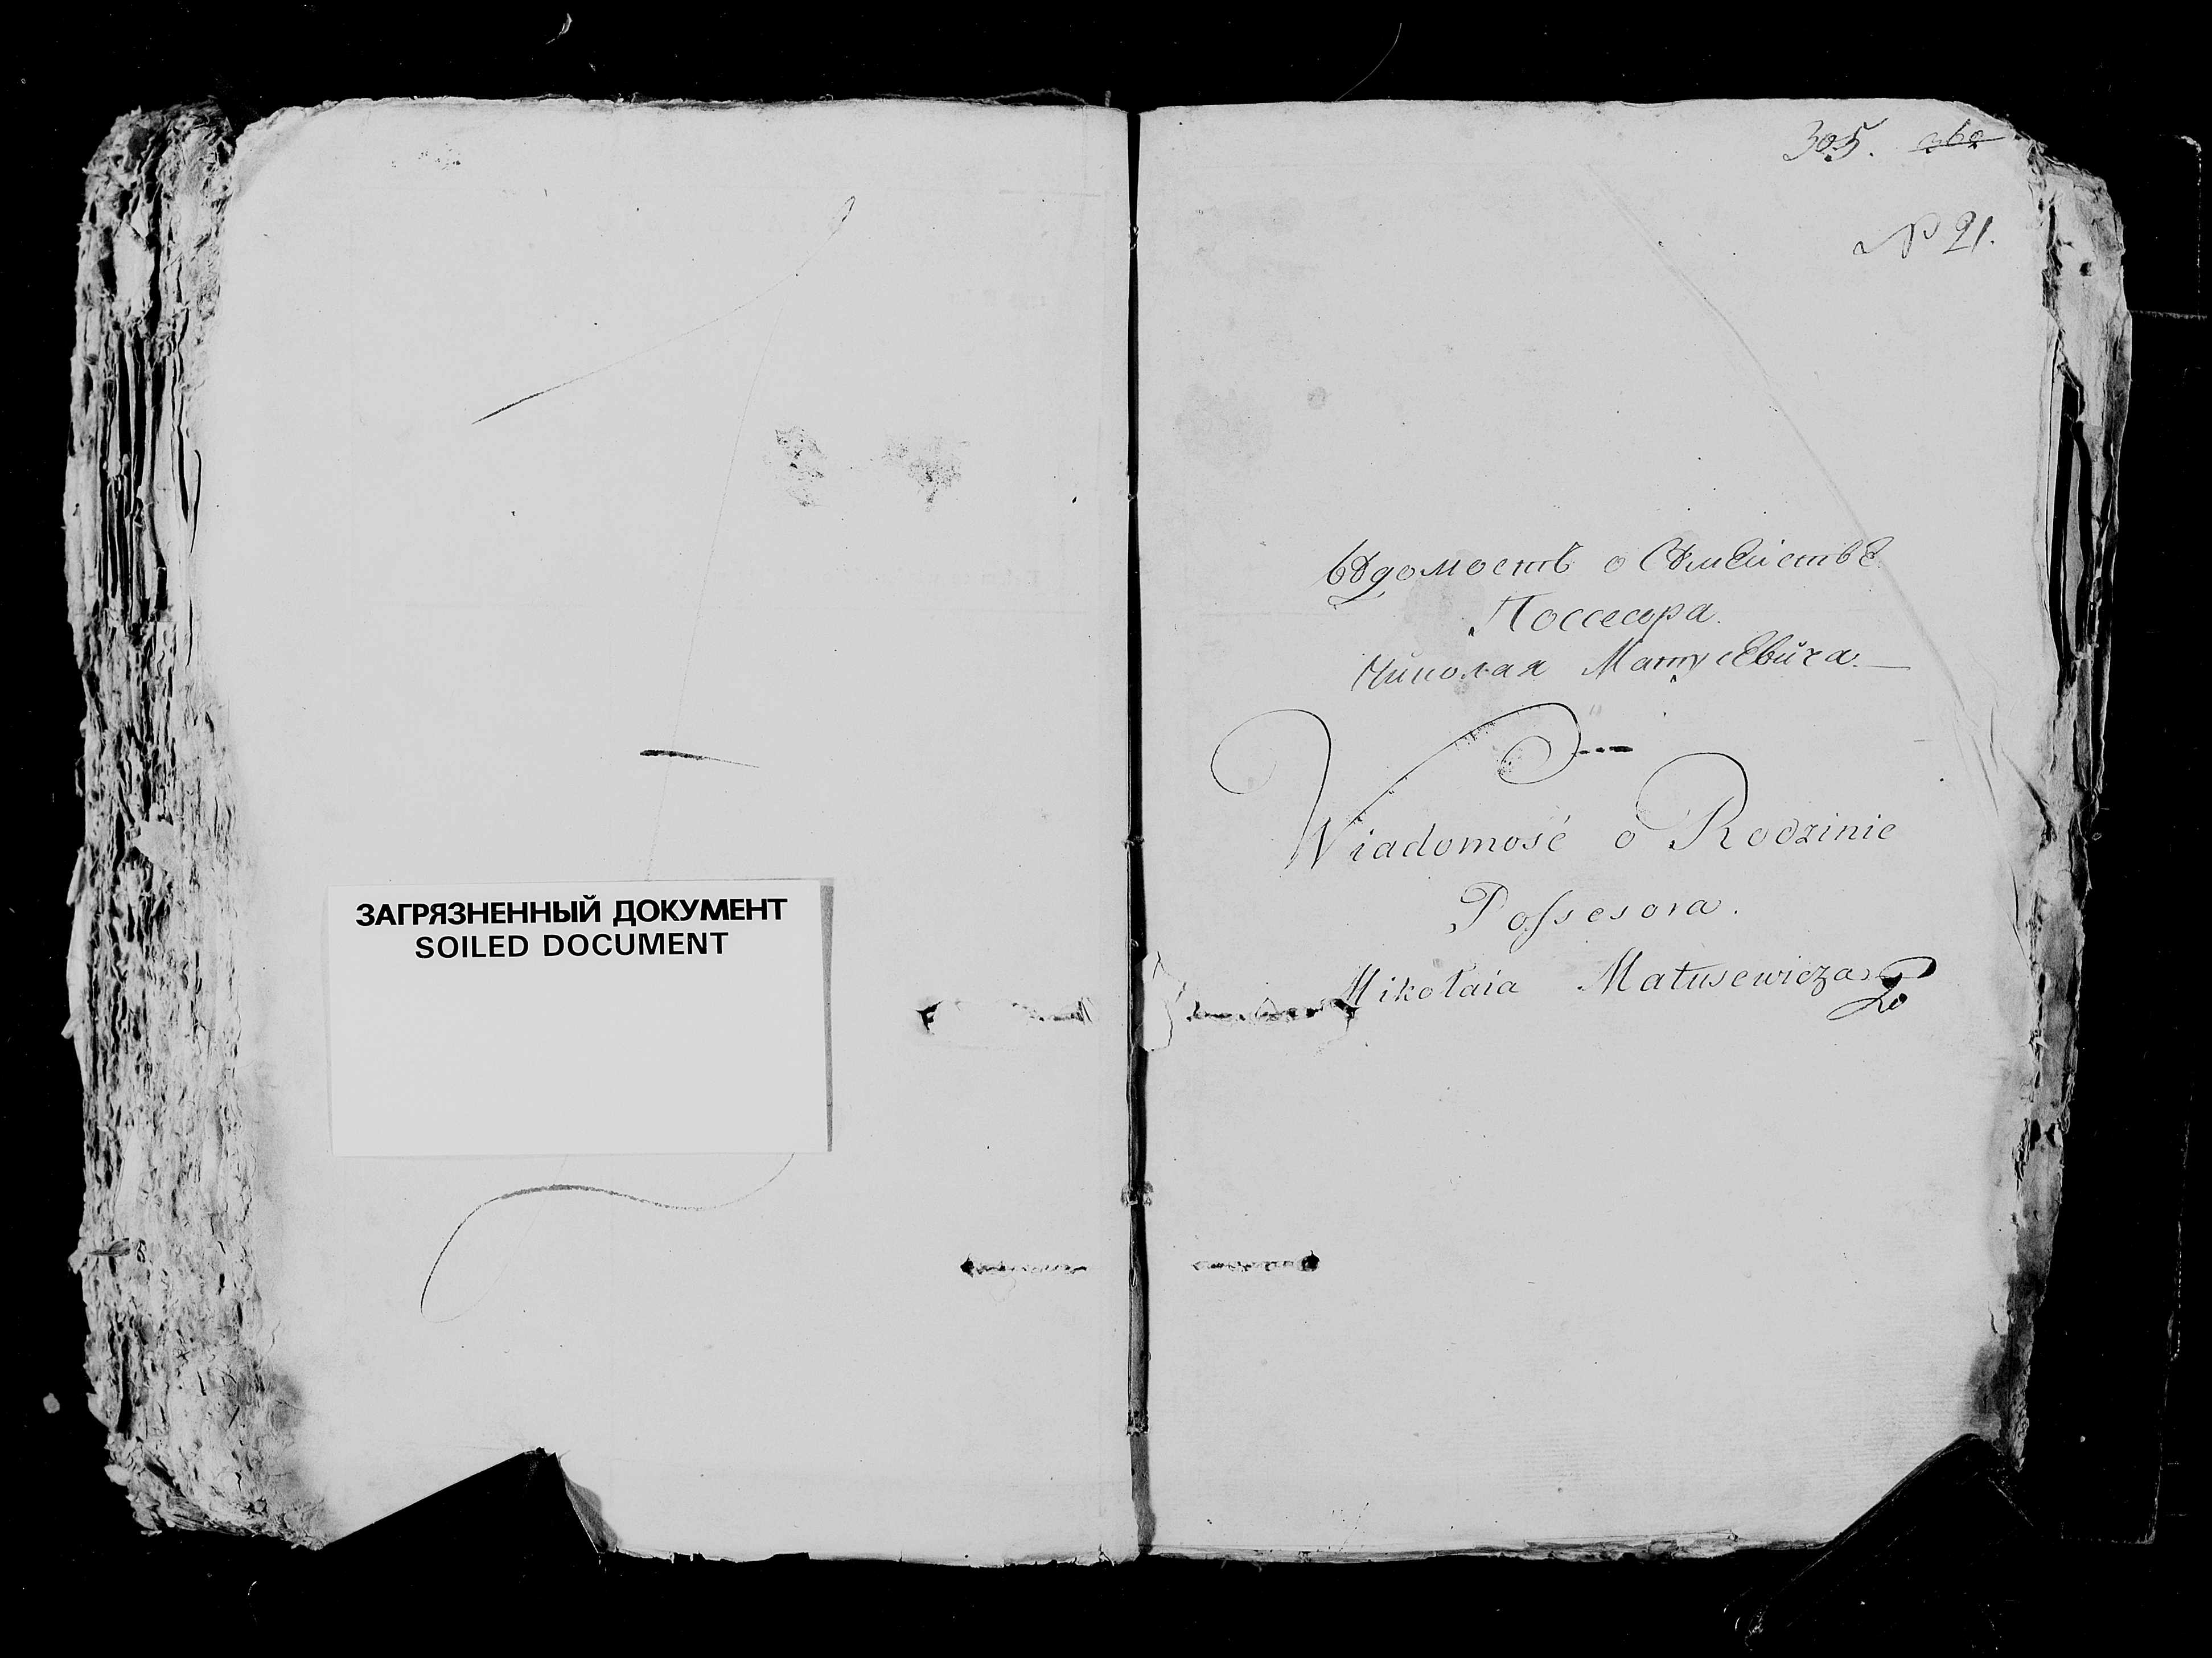 ЗАГРЯЗНЕННЫЙ ДОКУМЕНТ
SOILED DOCUMENT
305.
№ 21.
Вѣдомость о Сѣмействѣ
Поссесора.
Николая Матусевича.
Wiadomość o Rodzinie
Possesora.
Mikołaia Matusewicza